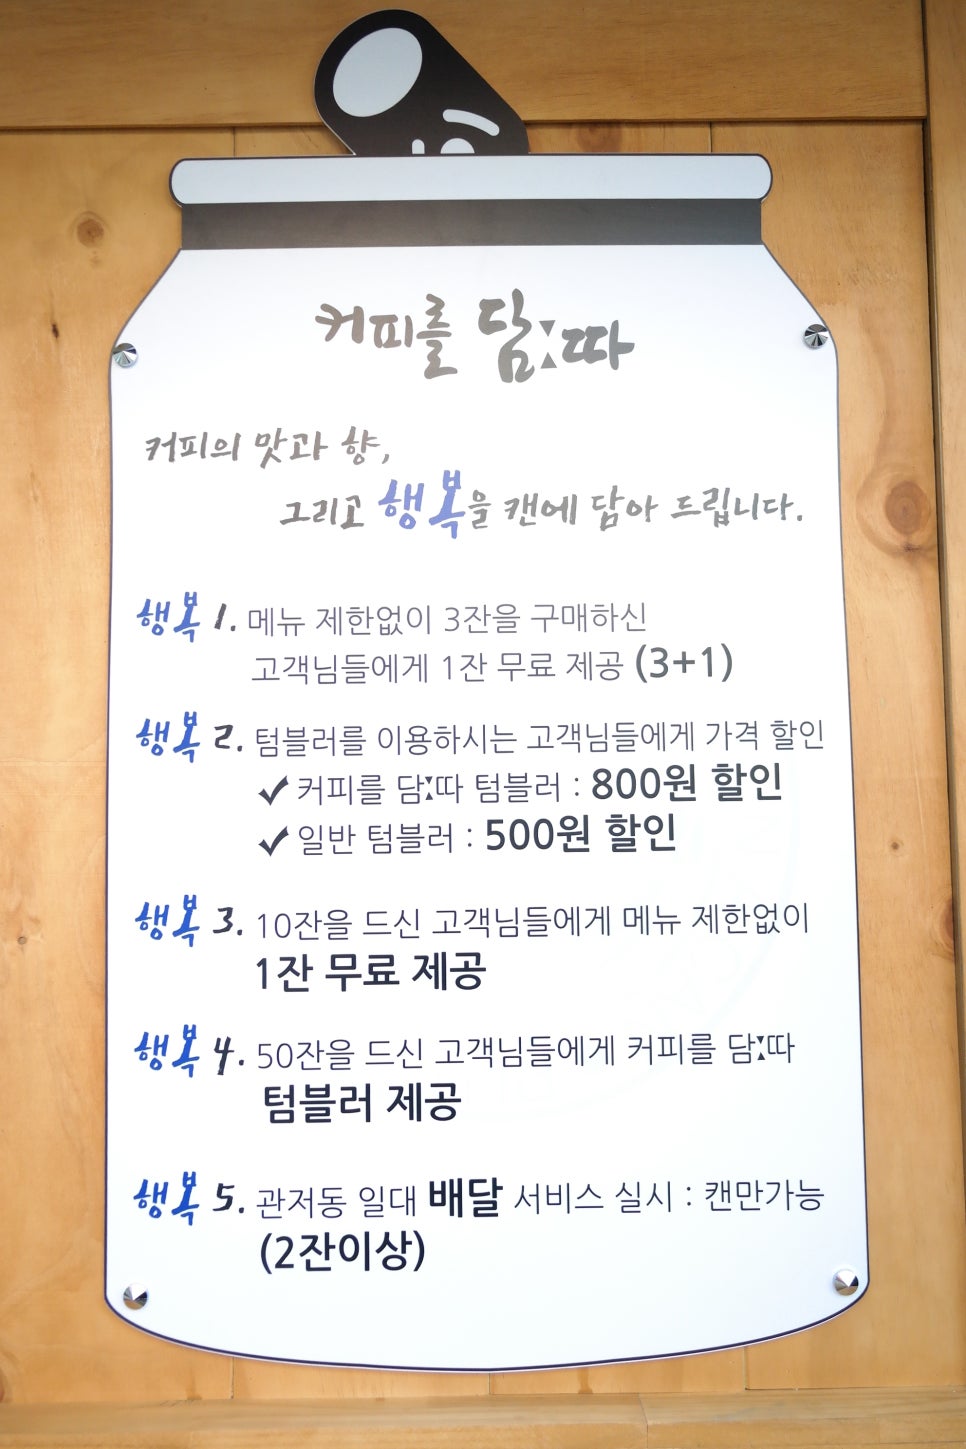 커피를 담:따
커피의 맛과 향,
그리고 행복을 캔에 담아 드립니다.
행복 1. 메뉴 제한없이 3잔을 구매하신
고객님들에게 1잔 무료 제공 (3+1)
행복 2. 텀블러를 이용하시는 고객님들에게 가격 할인
✔ 커피를 담:따 텀블러 : 800원 할인
✔ 일반 텀블러 : 500원 할인
행복 3. 10잔을 드신 고객님들에게 메뉴 제한없이
1잔 무료 제공
행복 4. 50잔을 드신 고객님들에게 커피를 담:따
텀블러 제공
행복 5. 관저동 일대 배달 서비스 실시 : 캔만가능
(2잔이상)